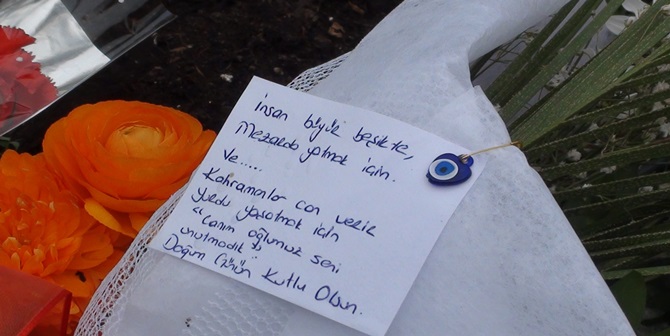 İnsan büyür beşikte,
Mezarda yatmak için.
Ve.....
Kahramanlar can verir
yurdu yaşatmak için
"Canım oğlumuz seni
unutmadık"
Doğum Günün Kutlu Olsun.